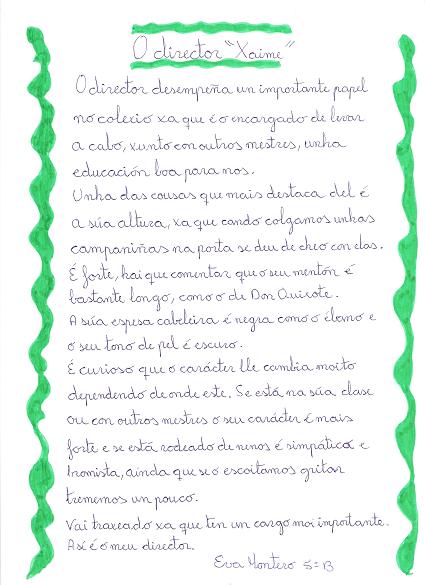 O director "Xaime"
O director desempeña un importante papel
no colexio xa que é o encargado de levar
a cabo, xunto con outros mestres, unha
educación boa para nos.
Unha das cousas que mais destaca del é
a súa altura, xa que cando colgamos unhas
campaniñas na porta se deu de cheo con elas.
É forte, hai que comentar que o seu mentón é
bastante longo, como o de Don Quixote.
A súa espesa cabeleira é negra como o ébano e
o seu tono de pel é escuro.
É curioso que o carácter lle cambia moito
dependendo de onde este. Se está na súa clase
ou con outros mestres o seu carácter é mais
forte e se está rodeado de nenos é simpático e
bromista, ainda que se o escoitamos gritar
trememos un pouco.
Vai traxeado xa que ten un cargo moi importante.
Así é o meu director.
Eva Montero 5º B